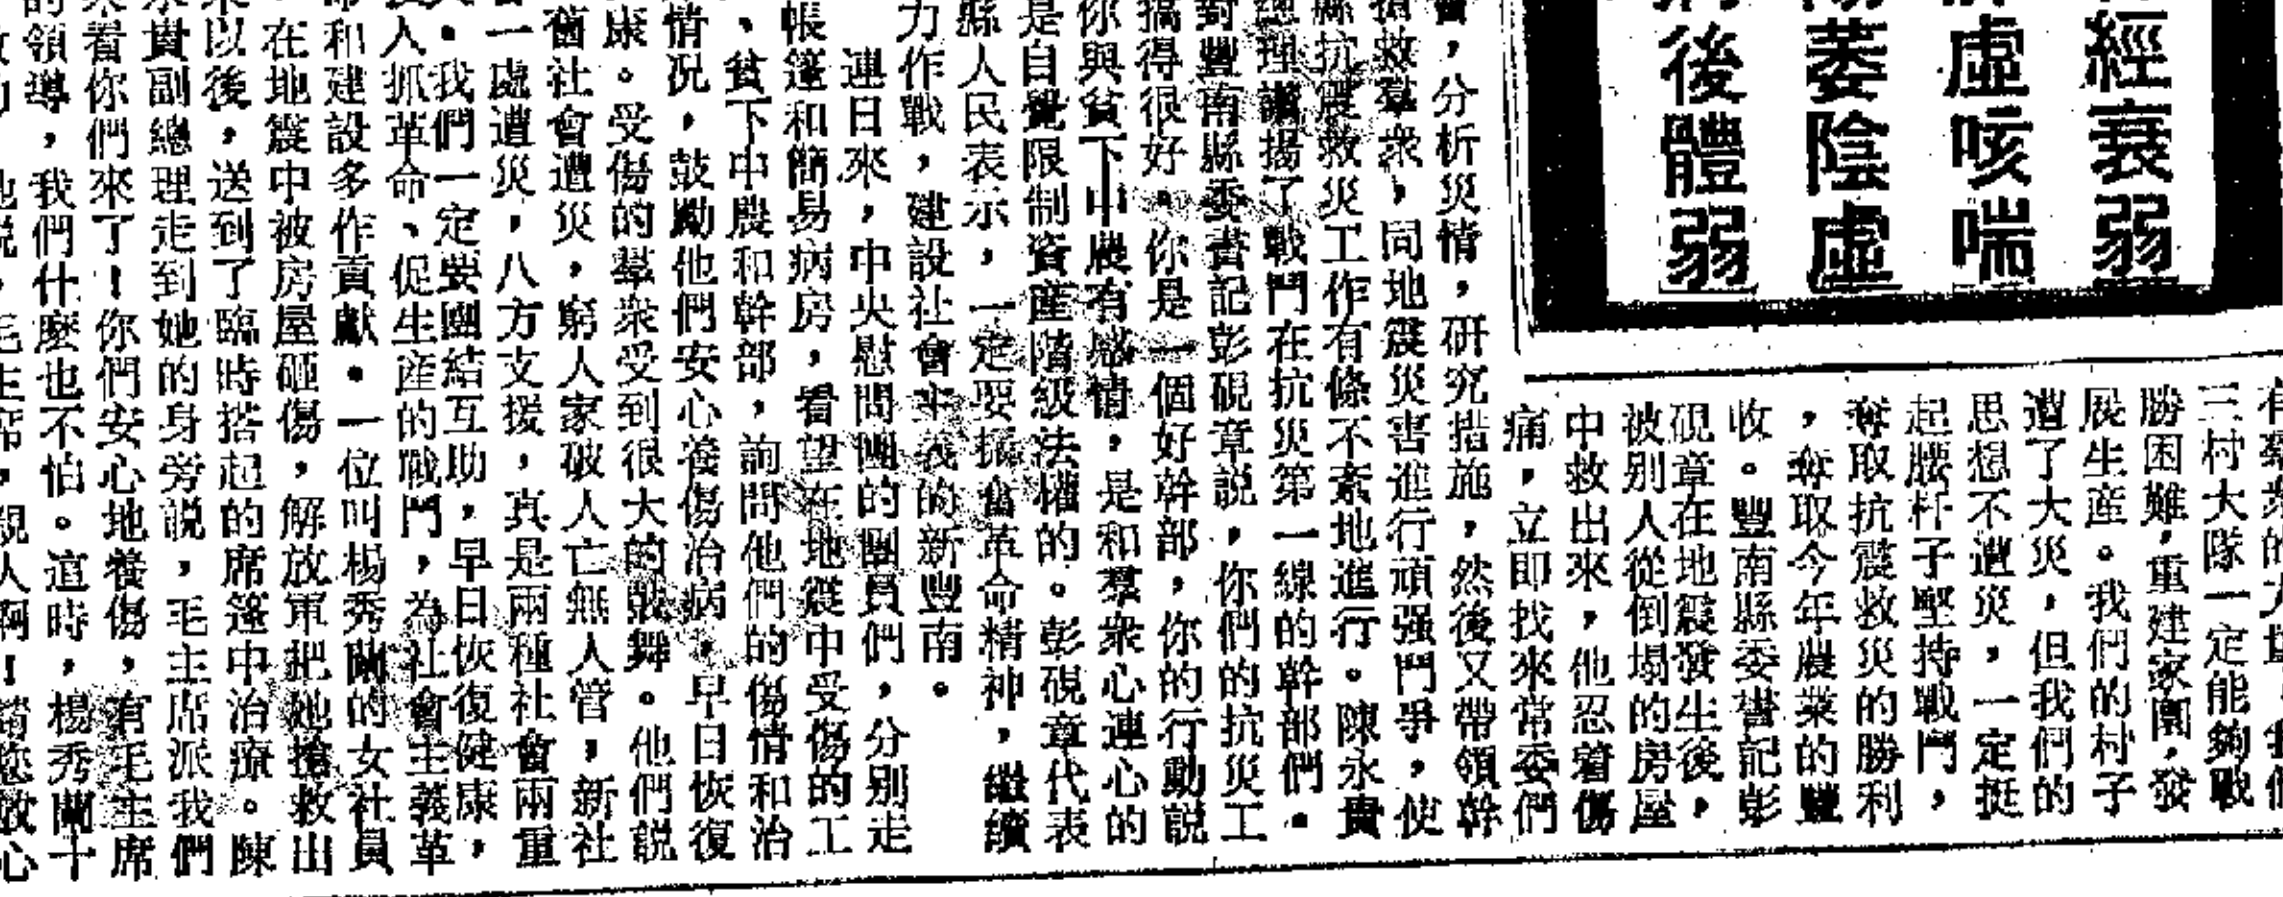 經衰弱
虛咳喘
萎陰虛
後體弱
三村大隊一定能夠戰
勝困難,重建家園,發
展生産。我們的村子
遭了大災,但我們的
思想不遭災,一定挺
起腰杆子堅持戰鬥,
奪取抗震救災的勝利
,奪取今年農業的豐
收。豐南縣委書記彭
硯章在地震發生後,
被别人從倒塌的房屋
中救出來,他忍着傷
痛,立即找來常委們
會,分析災情,研究措施,然後又帶領幹
搶救羣衆,同地震災害進行頑强鬥爭,使
縣抗震救災工作有條不紊地進行。陳永貴
總理讚揚了戰鬥在抗災第一線的幹部們。
對豐南縣委書記彭硯章説,你們的抗災工
搞得很好。你是一個好幹部,你的行動説
你與貧下中農有感情,是和羣衆心連心的
是自覺限制資産階級法權的。彭硯章代表
縣人民表示,一定要奮革命精神,繼續
力作戰,建設社會主義的新豐南。
連日來,中央慰問團的團員們,分别走
帳篷和簡易病房,看望在地震中受傷的工
、貧下中農和幹部,詢問他們的傷情和治
情况,鼓勵他們安心養傷治病,早日恢復
康。受傷的羣衆受到很大的鼓舞。他們説
舊社會遭災,窮人家破人亡無人管,新社
一處遭災,八方支援,真是兩種社會兩重
。我們一定要團結互助,早日恢復健康,
人抓革命、促生産的戰鬥,為社會主義革
和建設多作貢獻。一位叫楊秀蘭的女社員
在地震中被房屋砸傷,解放軍把她搶救出
以後,送到了臨時搭起的席篷中治療。陳
貴副總理走到她的身旁説,毛主席派我們
看你們來了!你們安心地養傷,有毛主席
的領導,我們什麼也不怕。這時,楊秀蘭十